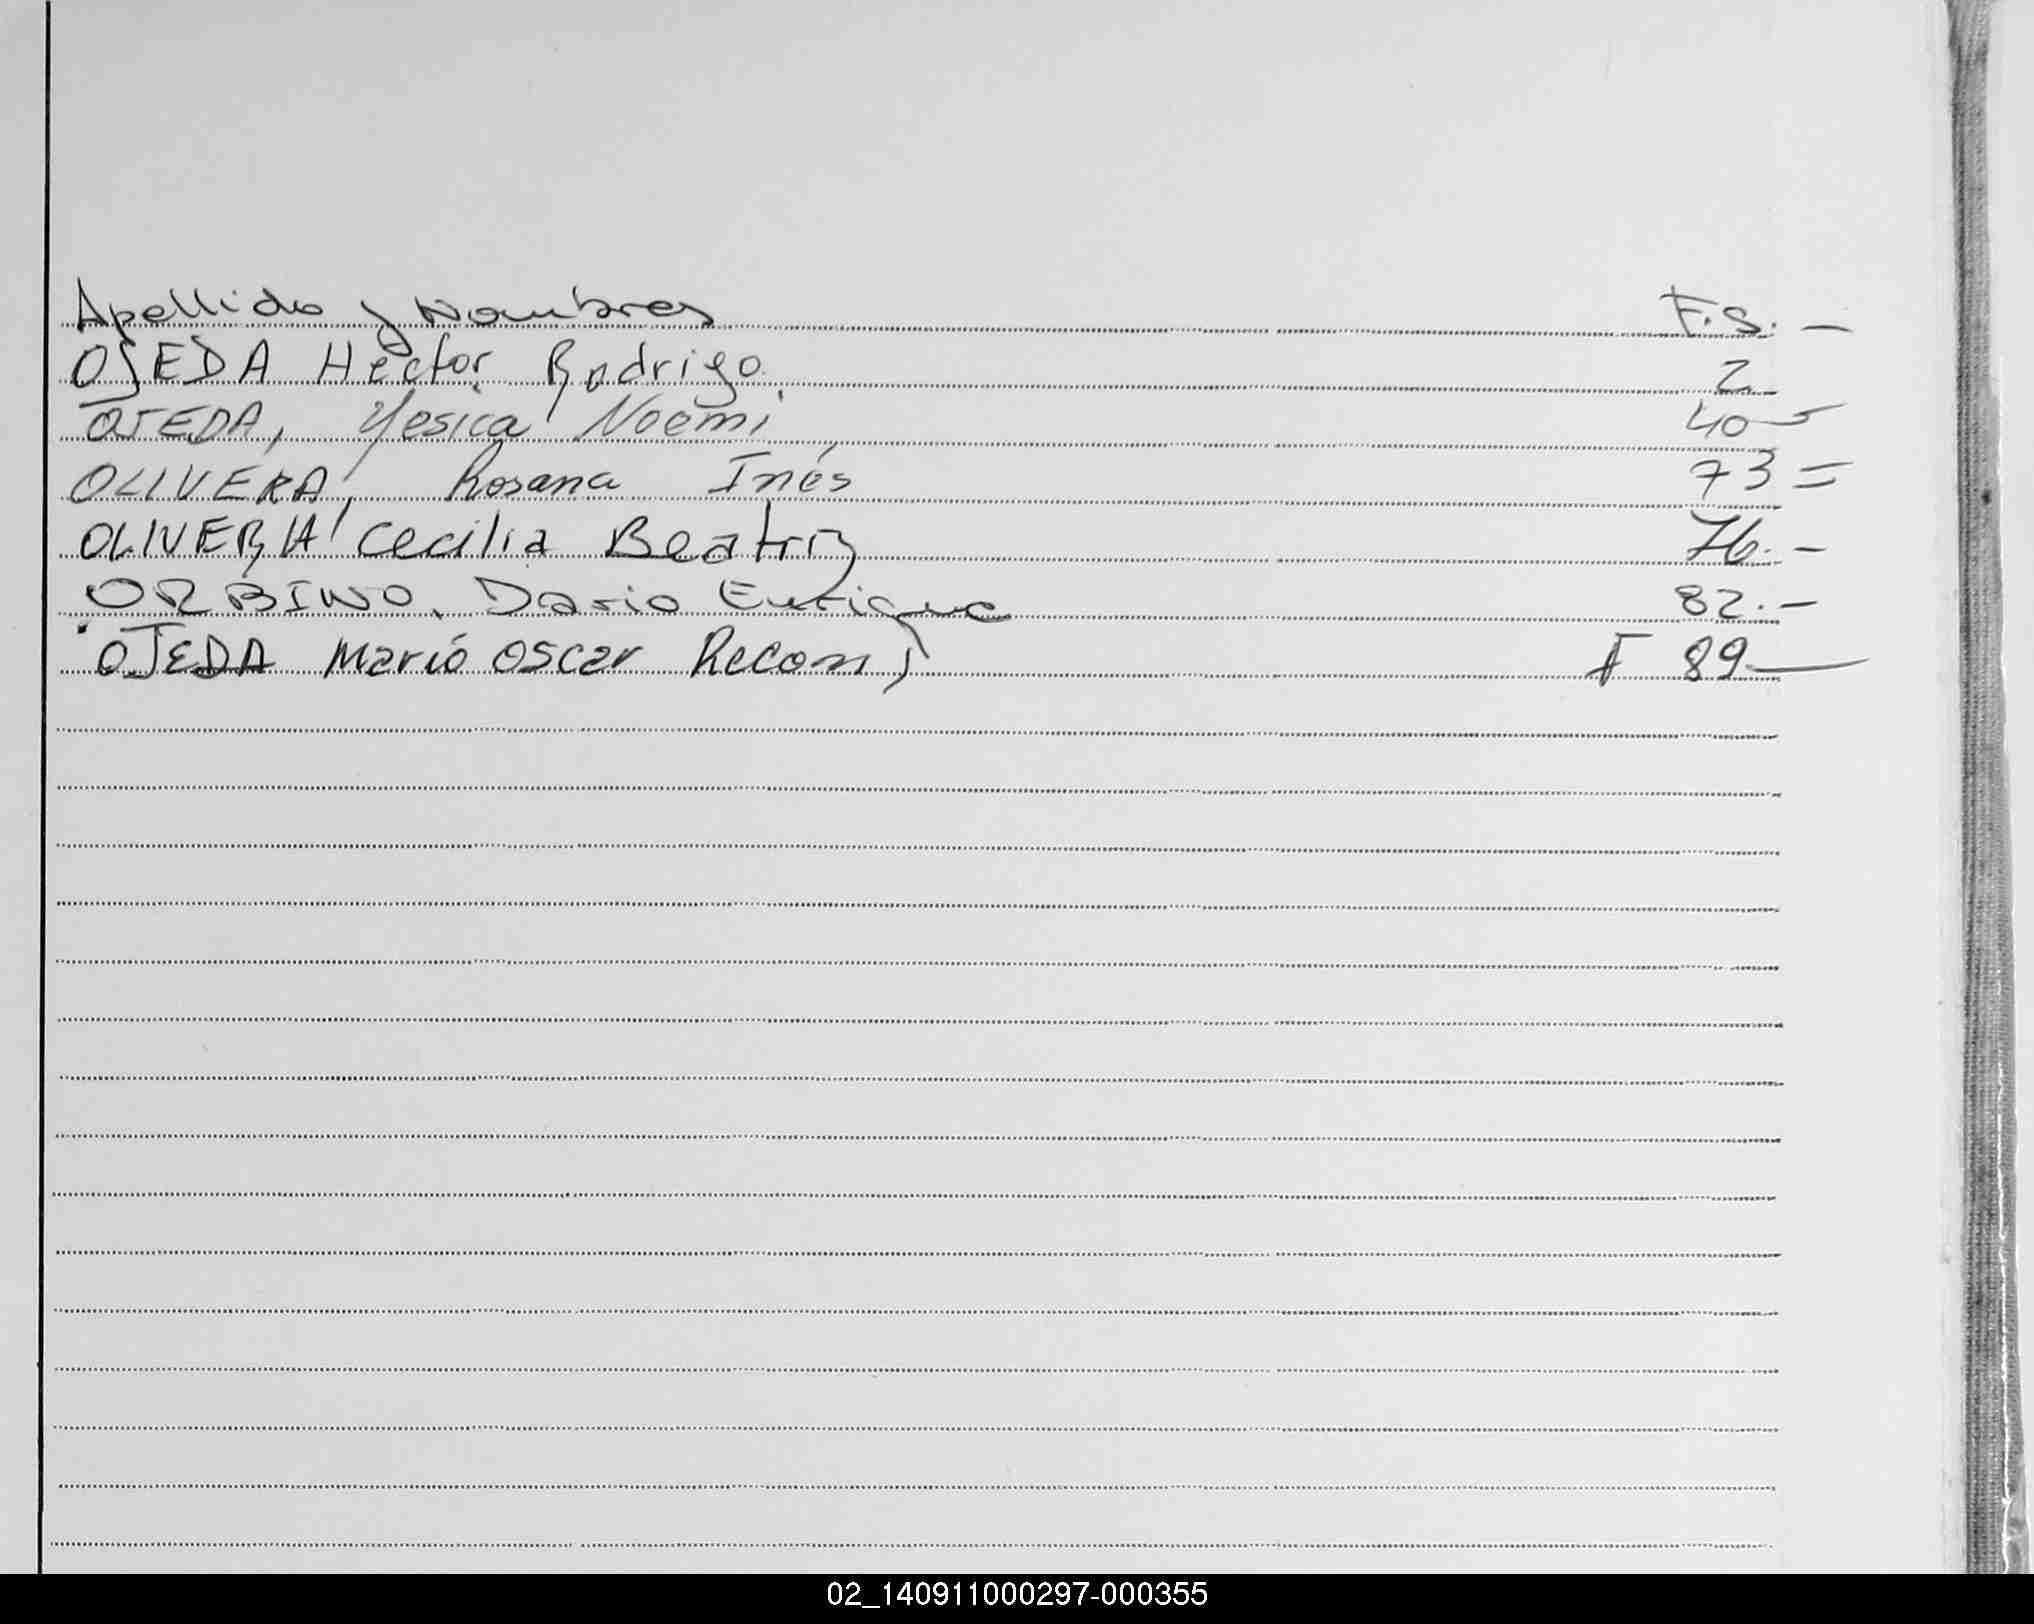 Apellido y Nombres F.S. —
OJEDA Hector Rodrigo 2
OJEDA, Yesica Noemi 40 —
OLIVERA, Rosana Inés 73 =
OLIVERIA Cecilia Beatriz 76. —
ORBINO. Dario Enrique 82. —
OJEDA Mario Oscar Recon, F 89 —
02_140911000297-000355